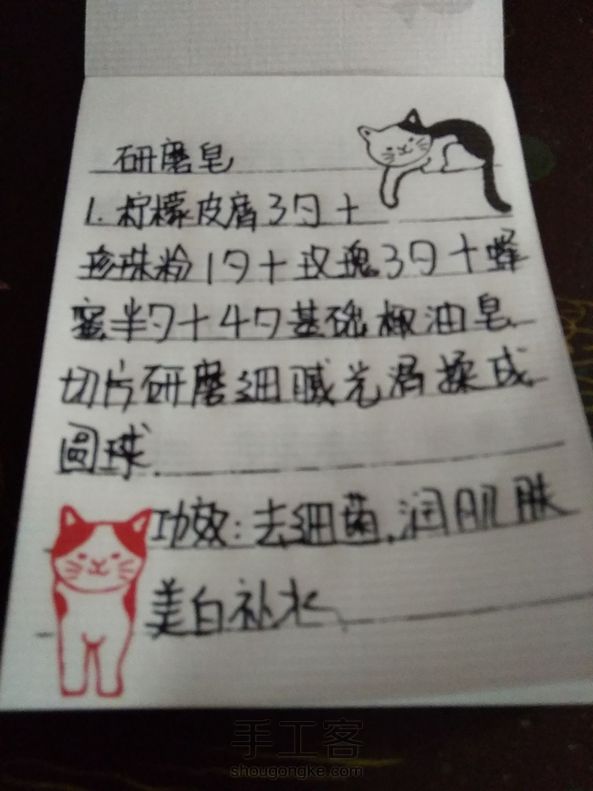 研磨皂
1.柠檬皮屑3勺+
珍珠粉1勺+玫瑰3勺+蜂
蜜半勺+4勺基础椒油皂
切片研磨细腻光滑揉成
圆球
功效:去细菌,润肌肤
美白补水
手工客
shougongke.com